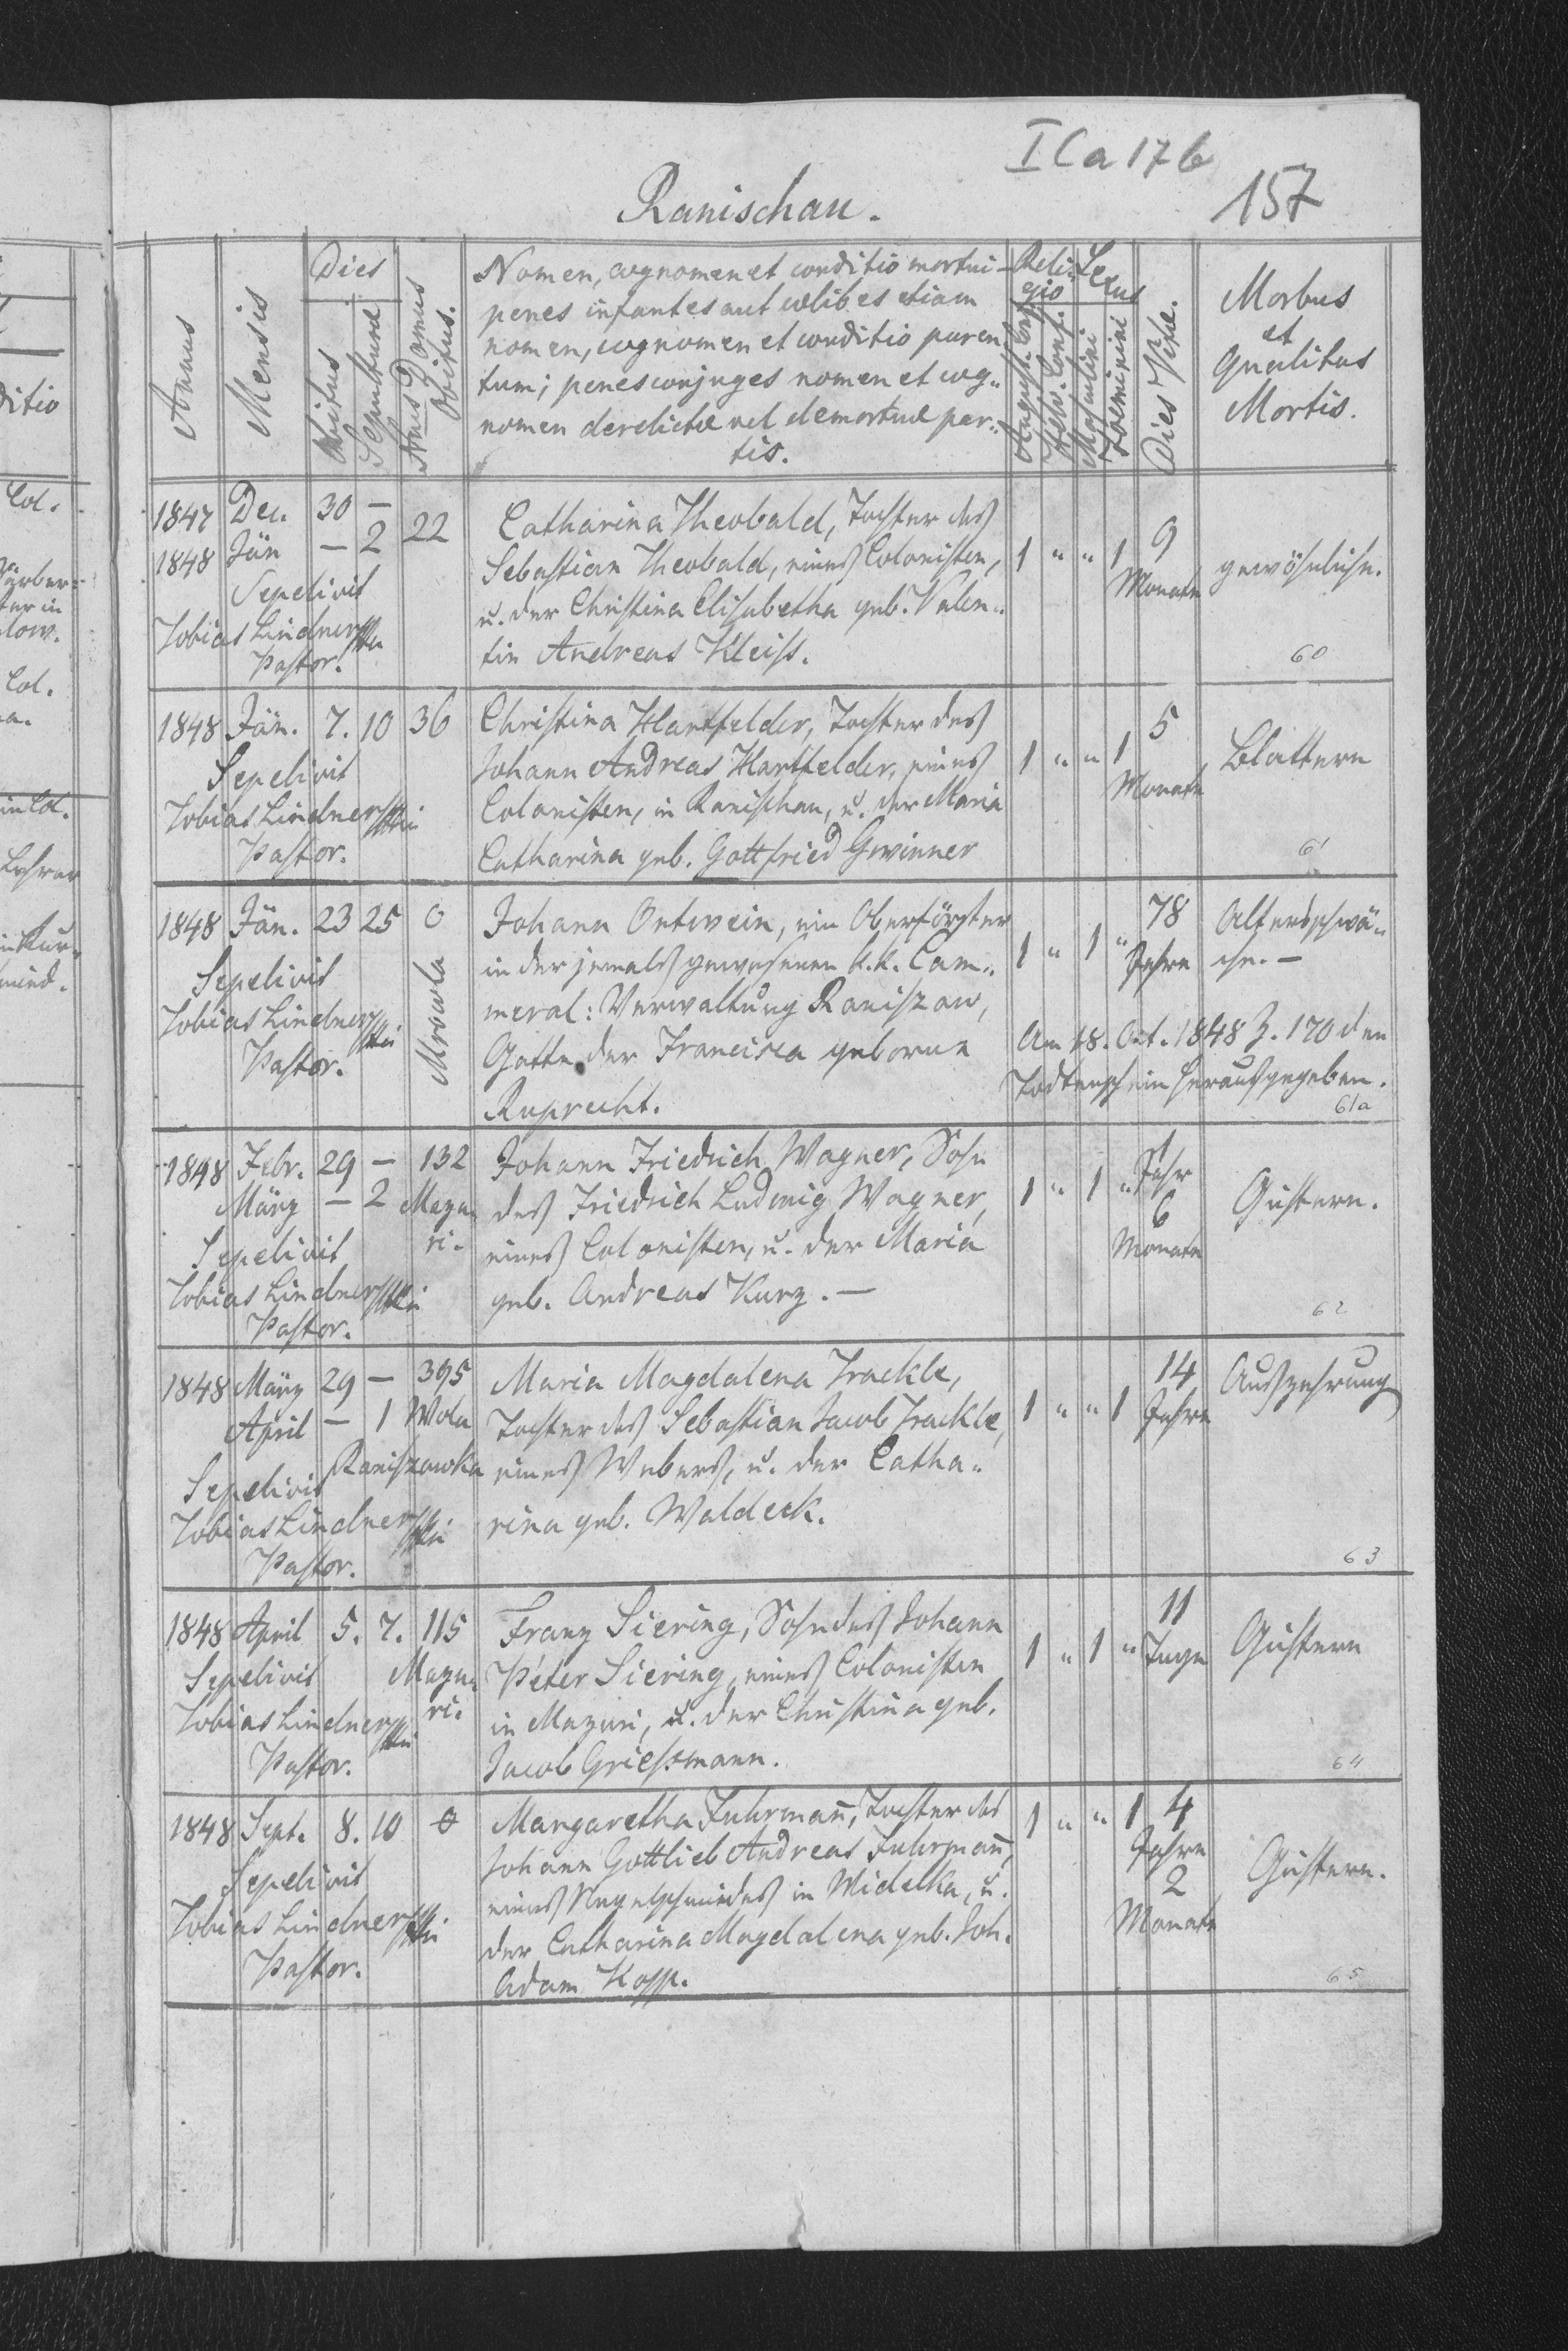 I C a 17 b
157
Ranischau.
Annus
Mensis
Dies
Obitus
Sepulturæ
Nrus Domus Obitus.
Nomen, cognomen et conditio mortui-
penes infantes aut cœlibes etiam
nomen, cognomen et conditio paren-
tum; penes conjuges nomen et cog„
nomen derelictæ vel demortuæ par„
tis.
Reli„
gio
August. Conf.
Helv. Conf.
Sexus
Masculini
Foeminini
Dies Vitæ.
Morbus
et
Qualitas
Mortis.
1847 Dec. 30 –
1848 Jän – 2 22
Sepelivit
Tobias Lindner
Pastor.
Catharina Theobald, Tochter des
Sebastian Theobald, eines Colonisten,
u. der Christina Elisabetha geb. Valen„
tin Andreas Kleiss.
1 „ „ 1
9
Monate
gewöhnliche.
60
1848 Jän. 7. 10 36
Sepelivit
Tobias Lindner
Pastor.
Christina Hartfelder, Tochter des
Johann Andreas Hartfelder, eines
Colonisten, in Ranischau, u. der Maria
Catharina geb. Gottfried Gwinner
1 „ „ 1
5
Monate
Blattern
61
1848 Jän. 23 25 0
Mrowla
Sepelivit
Tobias Lindner
Pastor.
Johann Ortwein, ein Oberförster
in der jemals gewesenen k.k. Cam„
meral: Verwaltung Raniszow,
Gatte der Francisca geborne
Ruprecht.
1 „ 1 „
78
Jahre
Altersschwä„
che. –
Am 18. Oct. 1848 Z. 170 den
Todtenschein herausgegeben.
61a
1848 Febr. 29 – 132
März – 2 Mazu„
ri.
Sepelivit
Tobias Lindner
Pastor.
Johann Friedrich Wagner, Sohn
des Friedrich Ludwig Wagner,
eines Colonisten, u. der Maria
geb. Andreas Kurz. –
1 „ 1 „
Jahr
6
Monate
Gustern.
62
1848 März 29 – 395
April – 1 Wola
Raniszowka
Sepelivit
Tobias Lindner
Pastor.
Maria Magdalena Trackle,
Tochter des Sebastian Jacob Trackle,
eines Webers, u. der Catha„
rina geb. Waldeck.
1 „ „ 1
14
Jahre
Auszehrung
63
1848 April 5. 7. 115
Mazu„
ri.
Sepelivit
Tobias Lindner
Pastor.
Franz Siering, Sohn des Johann
Peter Siering, eines Colonisten
in Mazuri, u. der Christina geb.
Jacob Griessmann.
1 „ 1 „
11
Tage
Gustern
64
1848 Sept. 8. 10 0
Sepelivit
Tobias Lindner
Pastor.
Margaretha Fuhrmañ, Tochter des
Johann Gottlieb Andreas Fuhrmañ,
eines Nagelschmiedes in Widelka, u.
der Catharina Magdalena geb. Joh.
Adam Kopp.
1 „ „ 1
4
Jahre
2
Monate
Gustern.
65
ditio
Col.
ter in
low.
Col.
Lehrer